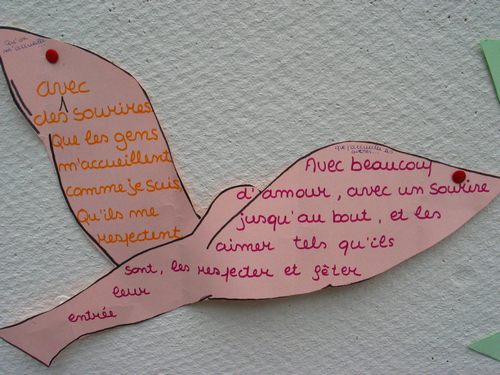 Qu'on
m'accueille
avec
des sourires
Que les gens
m'accueillent
comme je suis
Qu'ils me
respectent
Que j'accueille les
autres
Avec beaucoup
d'amour, avec un sourire
jusqu'au bout, et les
aimer tels qu'ils
sont, les respecter et fêter
leur
entrée